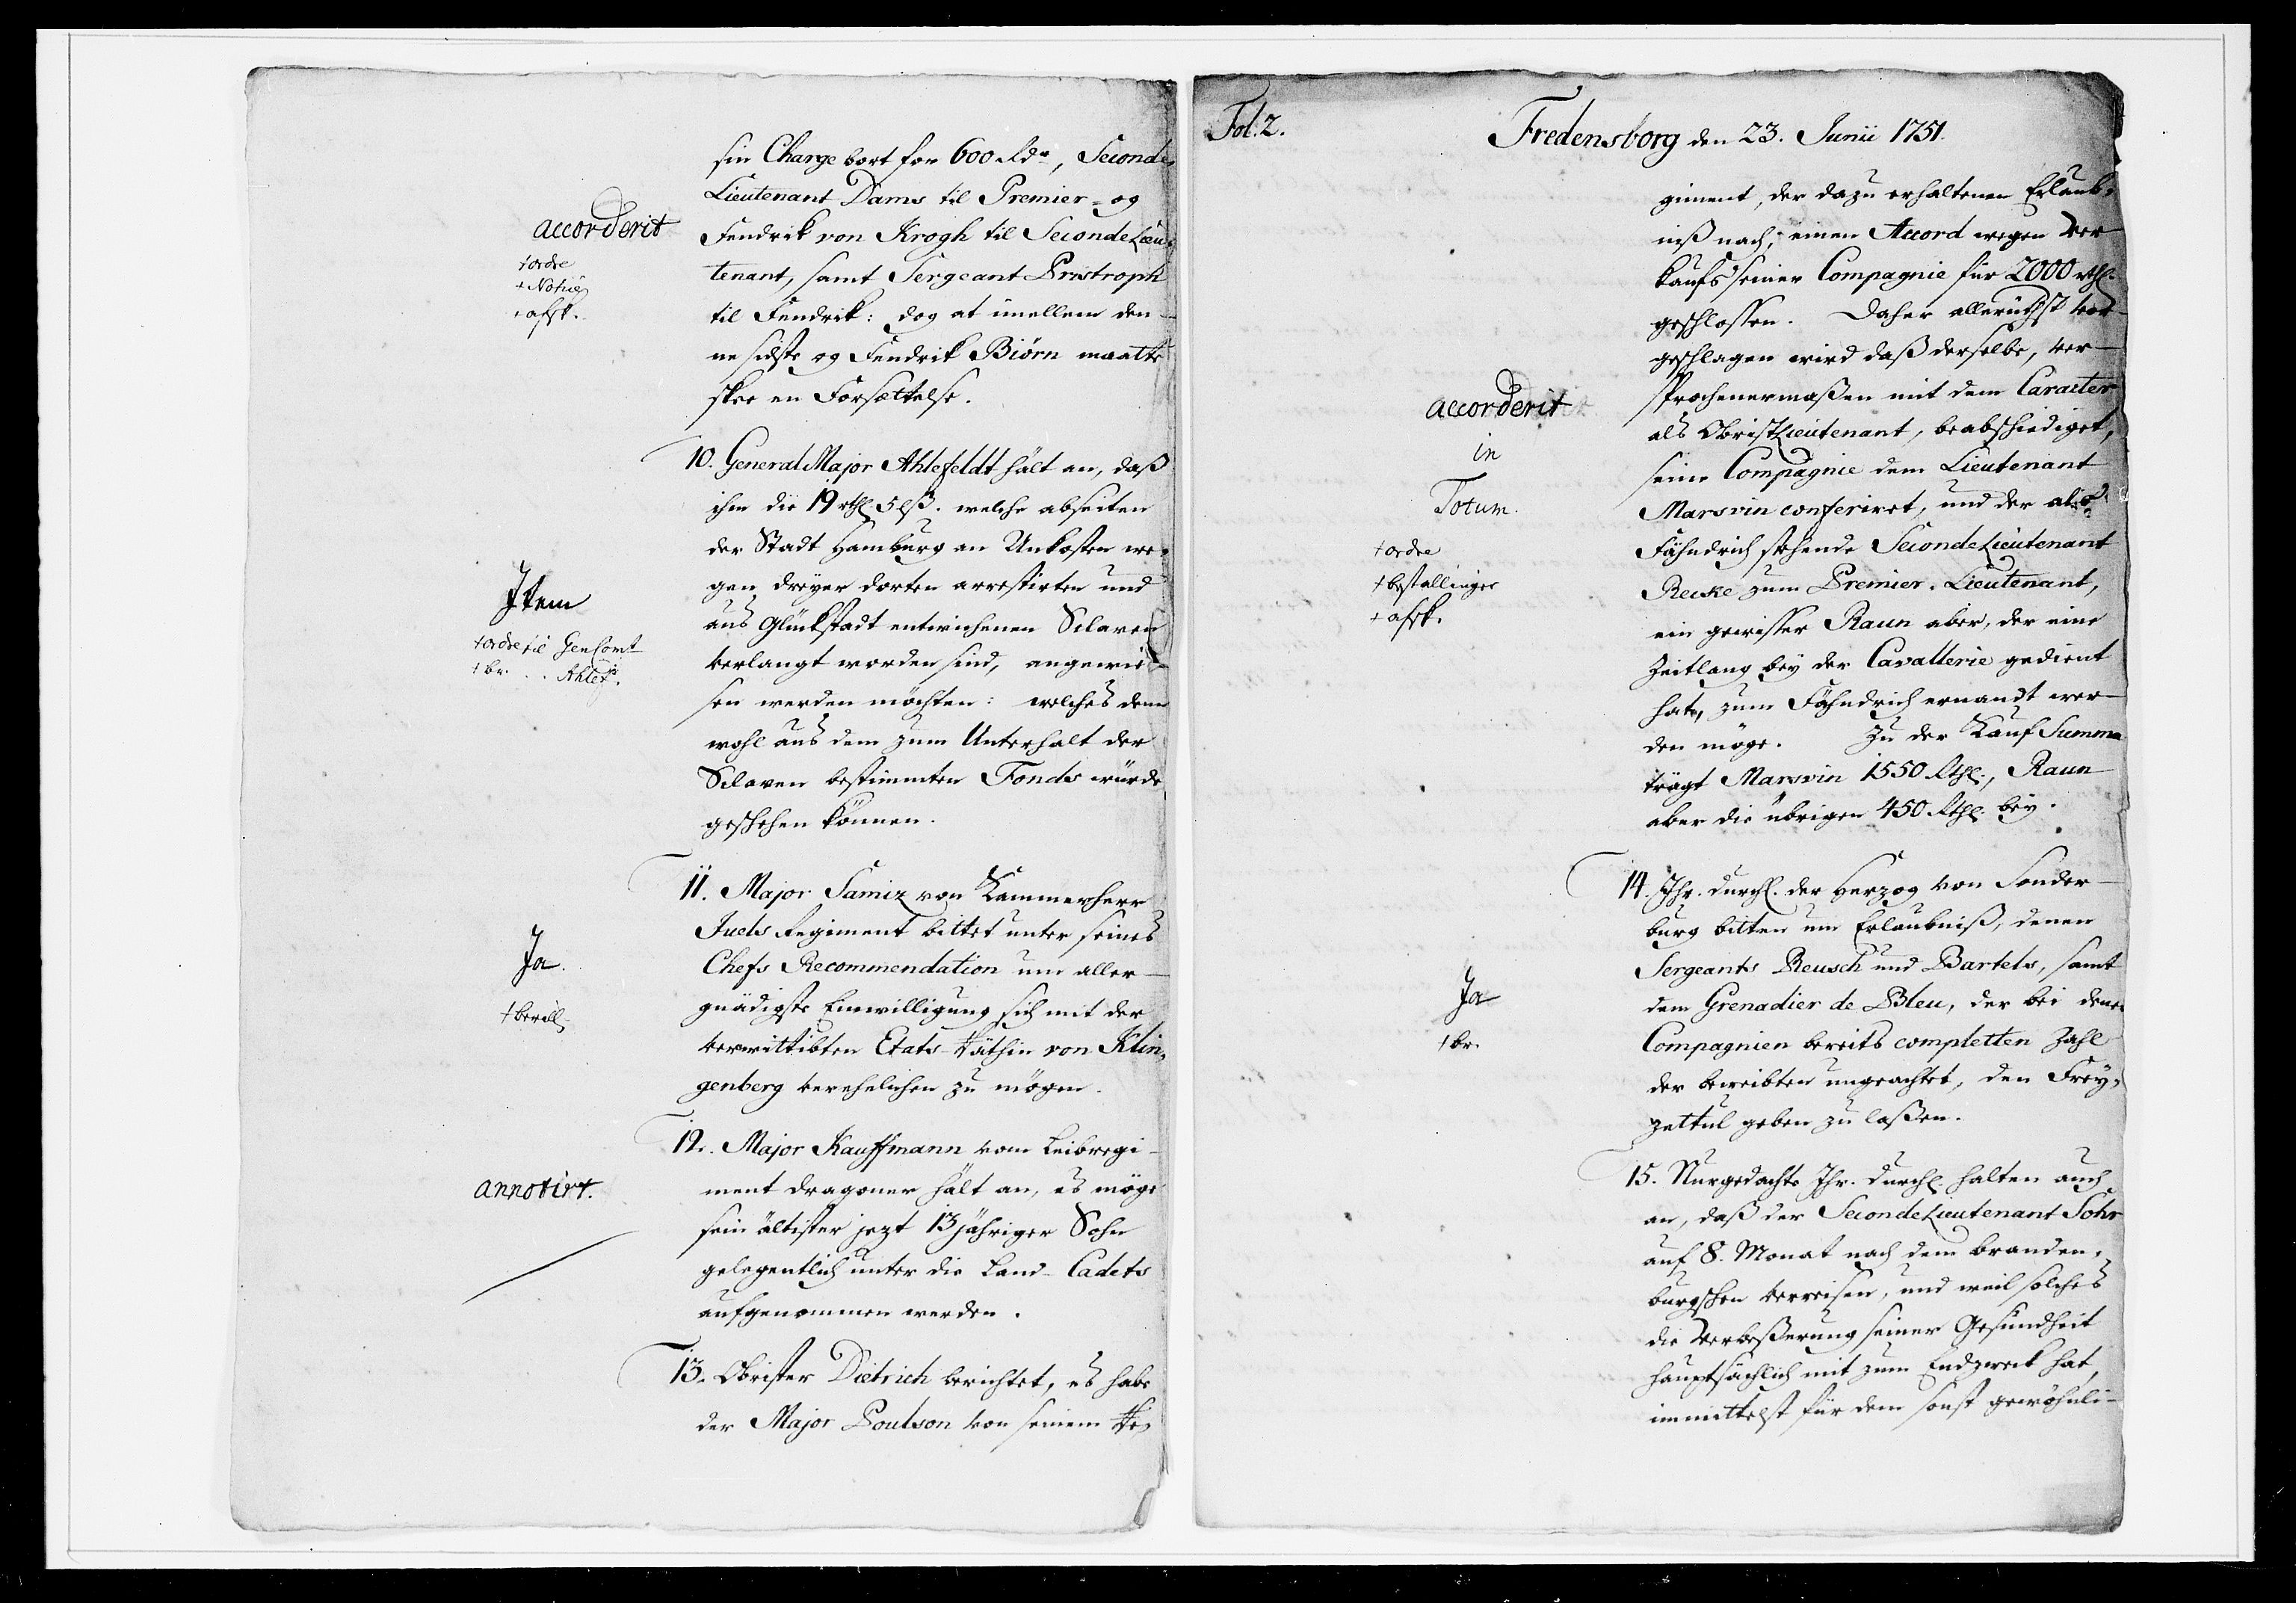 sin Charge bort for 600 Rdr, Seconde
Lieutenant Dams til Premier- og
accorderit
Fendrik von Krogh til Seconde Lieu-
+ ordre
tenant, samt Sergeant Pristroph
+ Notice
til Fendrik: dog at imellem den-
+ afsk.
ne sidste og Fendrik Biörn maatte
skee en Forsættelse.
10. General Major Ahlefeldt hält an, daß
ihm die 19 rthl. 5 lß. welche abseiten
der Stadt Hamburg an Unkosten we-
gen dreyer dorten arrestirten und
Item
aus Glückstadt entwichenen Sclaven
+ ordre til GenComt
verlangt worden sind, angewie-
+ br. . . Ahlef.
sen werden möchten: welches denn
wohl aus dem zum Unterhalt der
Sclaven bestimmten Fonds würde
geschehen können.
11. Major Samiz von Kammerherr
Juels Regiment bittet unter seines
Ja.
Chefs Recommendation um aller-
gnädigste Einwilligung sich mit der
+ bevill.
verwittibten Etats-Räthin von Klin-
genberg verehelichen zu mögen.
12. Major Kauffmann vom Leibregi-
annotirt.
ment Dragoner hält an, es möge
sein ältister jezt 13 jähriger Sohn
gelegentlich unter die Land-Cadets
aufgenommen werden.
13. Obrister Dietrich berichtet, es habe
der Major Poulson von seinem Re-
Fol. 2.
Fredensborg den 23. Junii 1751.
giment, der dazu erhaltenen Erlaub-
niß nach, einen Accord wegen Ver-
kaufs seiner Compagnie für 2000 rthl.
geschlossen. Daher allerunthst vor-
geschlagen wird daß derselbe, ver-
sprochenermaßen mit dem Caracter
accorderit
als ObristLieutenant, beabschiediget,
in
seine Compagnie dem Lieutenant
Totum.
Marsvin conferiret, und der als
+ ordre
Fähndrich stehende Seconde Lieutenant
+ bestallinger
Recke zum Premier-Lieutenant,
+ afsk.
ein gewisser Raun aber, der eine
Zeitlang bey der Cavallerie gedient
hat, zum Fähndrich ernandt wer-
den möge. Zu der Kauf Summa
trägt Marsvin 1550 Rthl., Raun
aber die übrigen 450 Rthl. bey.
14. Ihr. Durchl. der Herzog von Sonder-
burg bitten um Erlaubniß, denen
Sergeants Reusch und Bartels, samt
Ja
dem Grenadier de Bleu, der bei denen
+ br.
Compagnien bereits completten Zahl
der beweibten ungeachtet, den Frey-
zettul geben zu laßen.
15. Nurgedachte Ihr. Durchl. halten auch
an, daß der Seconde Lieutenant Sohr
auf 8. Monat nach dem Branden-
burgschen verreisen, und weil solches
die Verbeßerung seiner Gesundheit
hauptsächlich mit zum Endzweck hat,
immittelst für dem sonst gewöhnli-